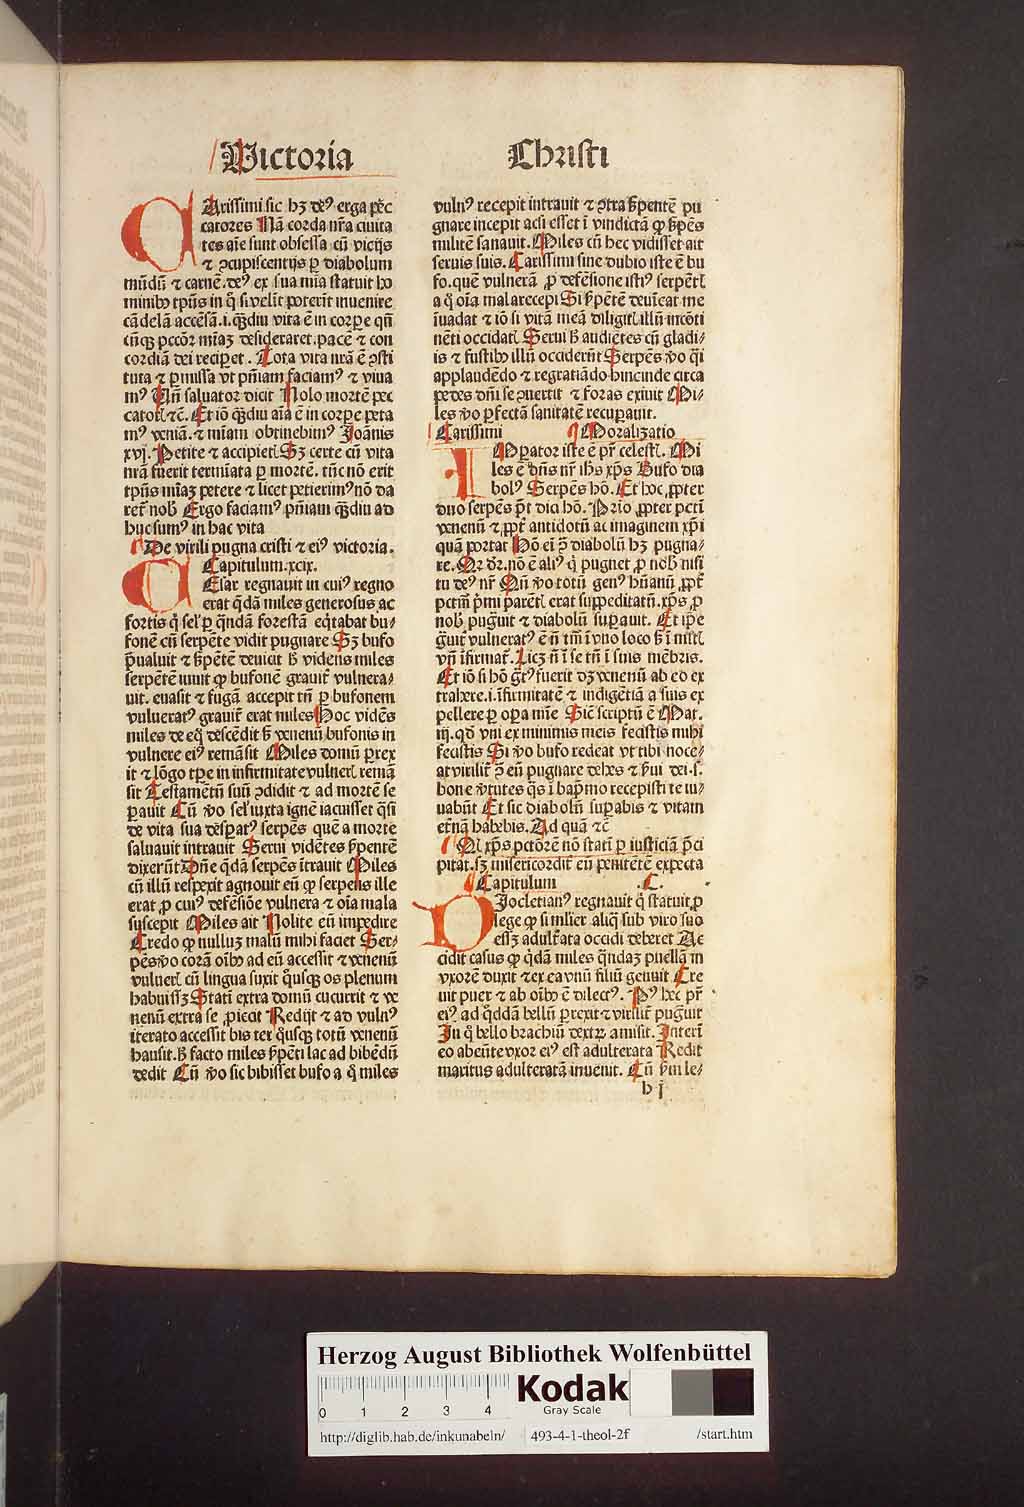 Victoria Christi
CArissimi sic hꝫ deꝰ erga pctͨ
catores Nā corda nr̄a ciuita
tes aīe sunt obsessa cū vicijs
⁊ ꝯcupiscentijs ꝑ diabolum
mūdū ⁊ carnē. deꝰ ex sua mīa statuit ho
minibꝰ tp̄us in q̊ si velīt poterīt inuenire
cādelā accēsā .i. qͣdiu vita ē in corꝑe qn̄
cūqꝫ pccōr mīaꝫ desideraret. pacē ⁊ con
cordiā dei reciꝑet. Tota vita nrā ē ꝯsti
tuta ⁊ ꝑmissa vt pn̄iam faciamꝰ ⁊ viua
mꝰ Vn̄ saluator dicit Nolo mortē pec
catoꝝ ⁊c̄. Et iō qͣdiu aīa ē in corꝑe peta
mꝰ veniā. ⁊ mīam obtinebimꝰ Joānis
xvj. Petite ⁊ accipietꝭ Sꝫ certe cū vita
nrā fuerit termīata ꝑ mortē. tūc nō erit
tp̄us mīaꝫ petere ⁊ licet petierimꝰ nō da
ret᷑ nob̄ Ergo faciamꝰ pn̄iam qͣdiu ad
huc sumꝰ in hac vita
De virili pugna cristi ⁊ eiꝰ victoria.
Capitulum .xcix.
CEsar regnauit in cuiꝰ regno
erat q̄dā miles generosus ac
fortis q̇ sel̓ ꝑ qn̄dā forestā eq̇tabat bu⸗
fonē cū serpēte vidit pugnare Sꝫ bufo
p̄ualuit ⁊ s̓pētē deuicit H̓ videns miles
serpētē iuuit ꝙ bufonē grauit᷑ vulnera⸗
uit. euasit ⁊ fugā accepit tn̄ ꝑ bufonem
vulueratꝰ grauit᷑ erat miles Hoc vidēs
miles de eq̊ descēdit s̓ venenū bufonis in
vulnere eiꝰ remāsit Miles domū ꝑrex
it ⁊ lōgo tꝑe in infirmitate vulneꝝ remā
sit Testamētū suū ꝯdidit ⁊ ad mortē se
ꝑauit Cū v̓o sel̓ iuxta ignē iacuisset qͣsi
de vita sua desperatꝰ serpēs quē a morte
saluauit intrauit Serui vidētes s̓pentē
dixerūt Dn̄e q̄dā serpēs ītrauit Miles
cū illū respexit agnouit eū ꝙ serpens ille
erat ꝓ cuiꝰ defēsiōe vulnera ⁊ oīa mala
suscepit Miles ait Nolite eū impedire
Credo ꝙ nulluꝫ malū mihi faciet Ser⸗
pēs v̓o corā oībꝰ ad eū accessit ⁊ venenū
vulneꝝ cū lingua suxit q̊usqꝫ os plenum
habuissꝫ Statī extra domū cucurrit ⁊ ve
nenū extra se ꝓiecit Redijt ⁊ ad vulnꝰ
iterato accessit bis ter q̊usqꝫ totū venenū
hausit. H̓ facto miles s̓pēti lac ad bibēdū
dedit Cū v̓o sic bibisset bufo a q̊ miles
vulnꝰ recepit intrauit ⁊ ꝯtra s̓pentē pu
gnare incepit acsi esset ī vindictā ꝙ s̓pēs
militē sanauit. Miles cū hec vidisset ait
seruis suis. Carissimi sine dubio iste ē bu
fo. quē vulnerā ꝓ defēsione istiꝰ serpētꝭ
a q̊ oīa mala recepi Si s̓pētē deuīcat me
īuadat ⁊ iō si vitā meā diligitꝭ illū incōti
nēti occidatꝭ Serui h̓ audiētes cū gladi⸗
is ⁊ fustibꝰ illū occiderūt Serpēs v̓o qͣsi
applaudēdo ⁊ regratiādo hincinde circa
pedes dn̄i se ꝯuertit ⁊ foras exiuit Mi⸗
les v̓o ꝑfectā sanitatē recuꝑauit.
Carissimi Moralizatio
IMꝑator iste ē pr̄ celestꝭ. Mi
les ē dn̄s nr̄ ihs xp̄s Bufo dia
bolꝰ Serpēs hō. Et hoc ꝓpter
duo serpēs p̄t dici hō. Prīo ꝓpter pctī
venenū ⁊ ꝓpt᷑ antidotū ac imaginem xp̄i
quā portat Hō ei p̄ diabolū hꝫ pugna⸗
re. Or dr̄. nō ē aliꝰ q̇ pugnet ꝓ nob̄ nisi
tu deꝰ nr̄ Qn̄ v̓o totū genꝰ hūanū ꝓpt᷑
pctm̄ p̓mi parētꝭ erat suppeditatū. xp̄s ꝓ
nob̄ pug̓uit ⁊ diabolū suꝑauit. Et ip̄e
g̓uit᷑ vulneratꝰ ē nō tm̄ ī vno loco s̓ ī mltꝭ
vn̄ īfirmat᷑. Licꝫ nō ī se tn̄ ī suis mēbris.
Et iō si hō g̓tꝰ fuerit dꝫ venenū ab eo ex
trahere .i. īfirmitatē ⁊ indigētiā a suis ex
pellere ꝑ oꝑa mīe Sic̄ scriptū ē Mat.
iij. qd̄ vni ex minimis meis fecistis mihi
fecistis Si v̓o bufo redeat vt tibi noce⸗
at virilit᷑ ꝯ̄ eū pugnare debes ⁊ s̓ui dei .s.
bone v̓tutes qͣs ī bap̄mo recepisti te iu⸗
uabūt Et sic diabolū suꝑabis ⁊ vitam
et̓nā habebis. Ad quā ⁊c̄
Ql xp̄s pctōrē nō statī ꝑ iusticiā p̄ci
pitat. sꝫ misericordit᷑ eū penitētē expecta
Capitulum .C.
DJocletianꝰ regnauit q̇ statuit ꝓ
lege ꝙ si ml̓ier aliq̄ sub viro suo
essꝫ adult̓ata occidi deberet Ac
cidit casus ꝙ q̇dā miles qn̄daꝫ puellā in
vxorē duxit ⁊ ex ea vnū filiū genuit Cre
uit puer ⁊ ab oībꝰ ē dilectꝰ. Pꝰ hec pr̄
eiꝰ ad qd̄dā bellū ꝑrexit ⁊ virilit᷑ pug̓uit
In q̊ bello brachiū dextꝝ amisit. Interī
eo abeūte vxor eiꝰ est adulterata Redit
maritus adulteratā inuenit. Cū s̓m le⸗
b j
Herzog August Bibliothek Wolfenbüttel
0 1 2 3 4
Kodak
Gray Scale
http://diglib.hab.de/inkunabeln/ 493-4-1-theol-2f /start.htm